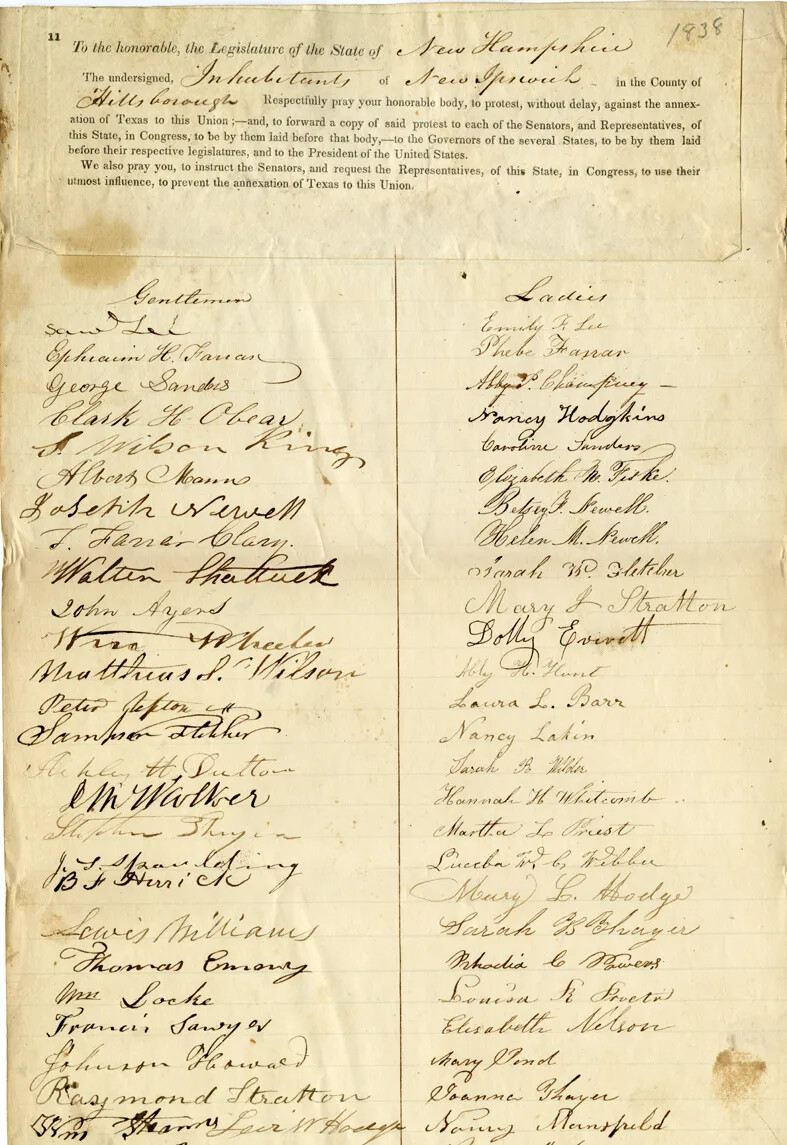 1838
11
To the honorable, the Legislature of the State of New Hampshire
The undersigned, Inhabitants of New Ipswich in the County of
Hillsborough Respectfully pray your honorable body, to protest, without delay, against the annex-
ation of Texas to this Union ;—and, to forward a copy of said protest to each of the Senators, and Representatives, of
this State, in Congress, to be by them laid before that body,—to the Governors of the several States, to be by them laid
before their respective legislatures, and to the President of the United States.
We also pray you, to instruct the Senators, and request the Representatives, of this State, in Congress, to use their
utmost influence, to prevent the annexation of Texas to this Union.
Gentlemen
Lee
Ephraim H. Farrar
George Sanders
Clark H Obear
S. Wilson King
Albert Mann
Joseph Newell
T. Farrar Clary.
Walter Shattuck
John Ayers
Wm Wheeler
Matthias S. Wilson
Peter
Sampson Fletcher
H Dutton
J M Walker
Stephen Thayer
J. S. Spaulding
B F Herrick
Lewis Williams
Thomas Emory
Wm Locke
Francis Sawyer
Johnson Howard
Raymond Stratton
Wm Stearns Levi W Hodge
Ladies
Emily F. Lee
Phebe Farrar
Abby P. Champney
Nancy Hodgkins
Caroline Sanders
Elizabeth M. Fiske.
Betsey F. Newell.
Helen M. Newell.
Sarah W. Fletcher
Mary J Stratton
Dolly Everett
Abby H. Hunt
Laura L. Barr
Nancy Lakin
Sarah B Wilder
Hannah H Whitcomb
Martha L Priest
W. C Webber
Mary L. Hodge
Sarah B Thayer
Rhodia C Powers
Louisa K Procter
Elisabeth Nelson
Mary Pond
Joanna Thayer
Nancy Mansfield